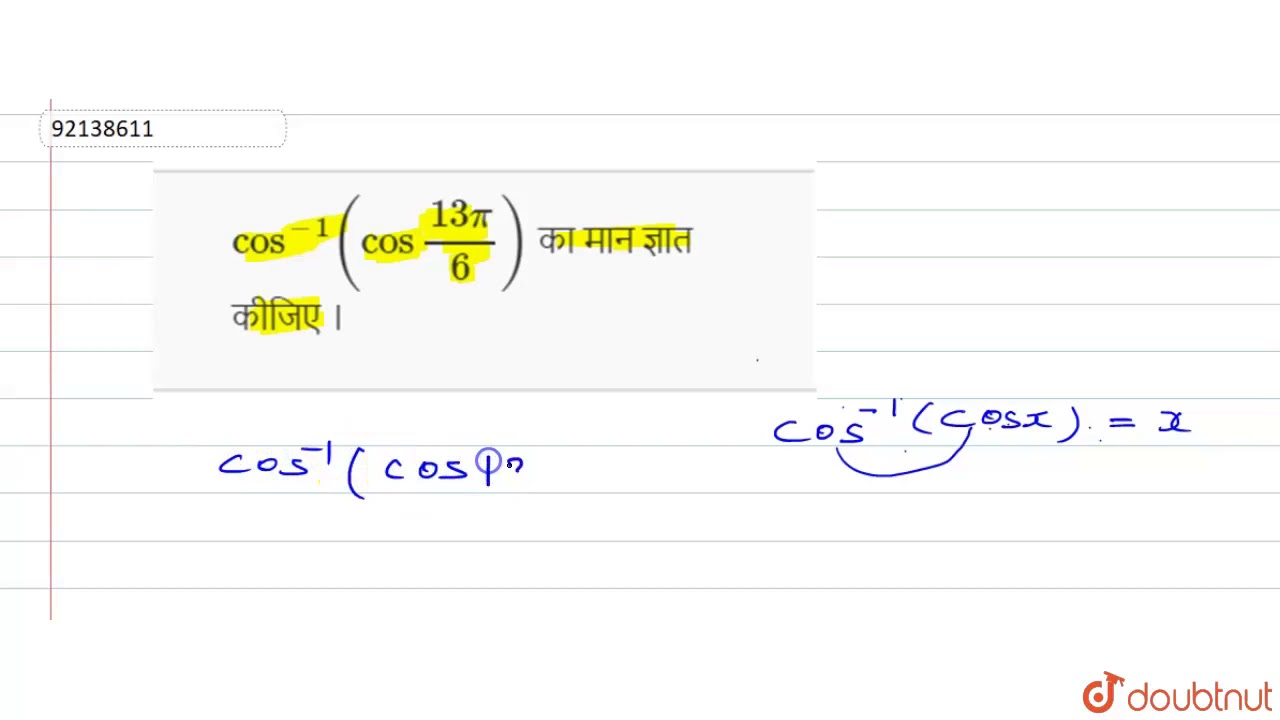 92138611
cos⁻¹(cos 13π/6) का मान ज्ञात
कीजिए ।
cos⁻¹(cosx) = x
cos⁻¹( cos
doubtnut